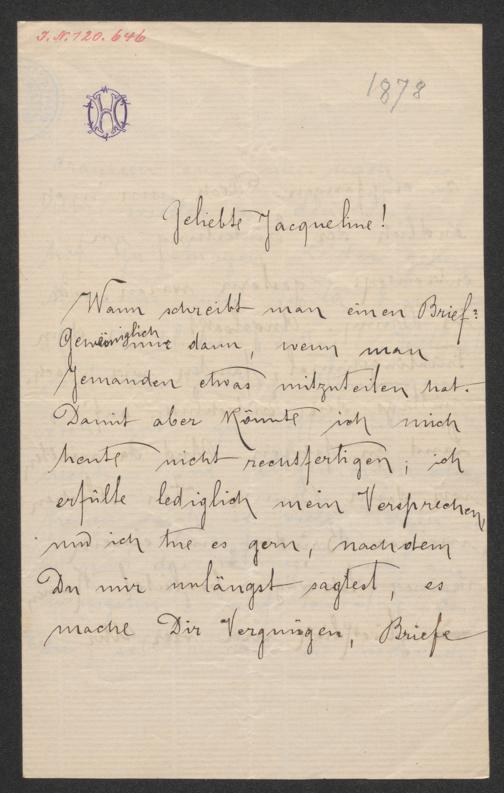 I.N. 120.646
1878
H
Geliebte Jacqueline!
Wann schreibt man einen Brief?
dann, wenn man
Jemanden etwas mitzuteilen hat.
Damit aber könnte ich mich
heute nicht rechtfertigen; ich
erfülle lediglich mein Versprechen,
und ich tue es gern, nachdem
Du mir unlängst sagtest, es
mache Dir Vergnügen, Briefe